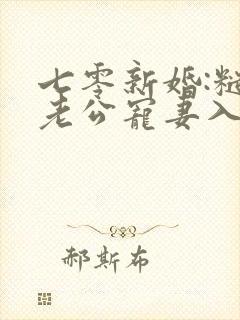 七零新婚:糙
老公宠妻入
郝斯布